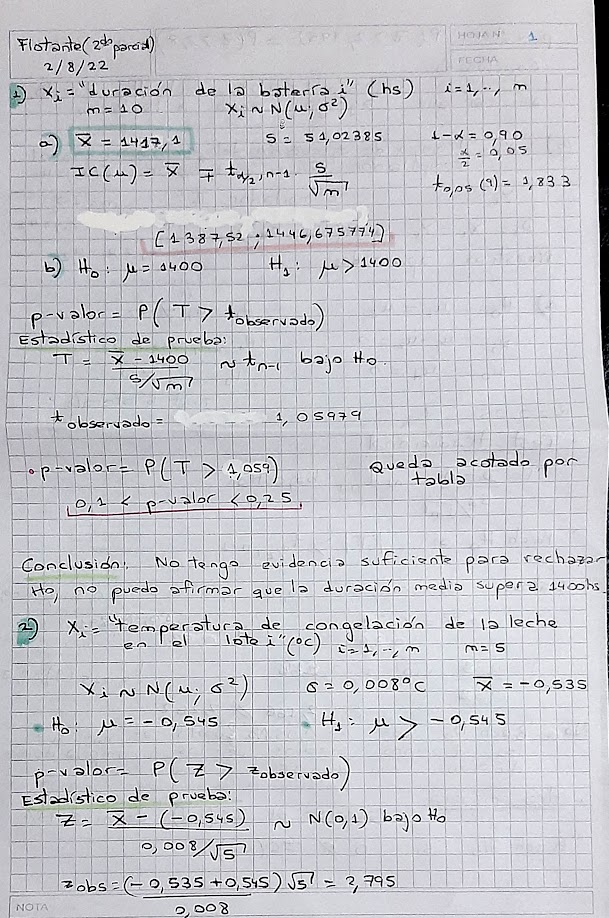 HOJA Nº 1
FECHA
Flotante (2do parcial)
2/8/22
1) Xi = "duración de la batería i" (hs) i=1,..,n
n=10 Xi ~ N(μ; σ²)
a) X̄ = 1417,1 S = 51,02385 1-α=0,90
α/2 = 0,05
IC(μ) = X̄ ∓ tα/2, n-1 S/√n t0,05 (9) = 1,833
[1387,52 ; 1446,675774]
b) H0: μ = 1400 H1: μ > 1400
p-valor = P(T > tobservado)
Estadístico de prueba:
T = X̄ - 1400 / S/√n ~ tn-1 bajo H0
tobservado = 1,05979
p-valor = P(T > 1,059) Queda acotado por
tabla
0,1 < p-valor < 0,25
Conclusión: No tengo evidencia suficiente para rechazar
H0, no puedo afirmar que la duración media supera 1400hs.
2) Xi = "temperatura de congelación de la leche
en el lote i" (ºC) i=1,..,n n=5
Xi ~ N(μ; σ²) σ = 0,008ºC X̄ = -0,535
H0: μ = -0,545 H1: μ > -0,545
p-valor = P(Z > zobservado)
Estadístico de prueba:
Z = X̄ - (-0,545) / 0,008/√5 ~ N(0,1) bajo H0
zobs = (-0,535 + 0,545) √5 / 0,008 = 2,795
NOTA